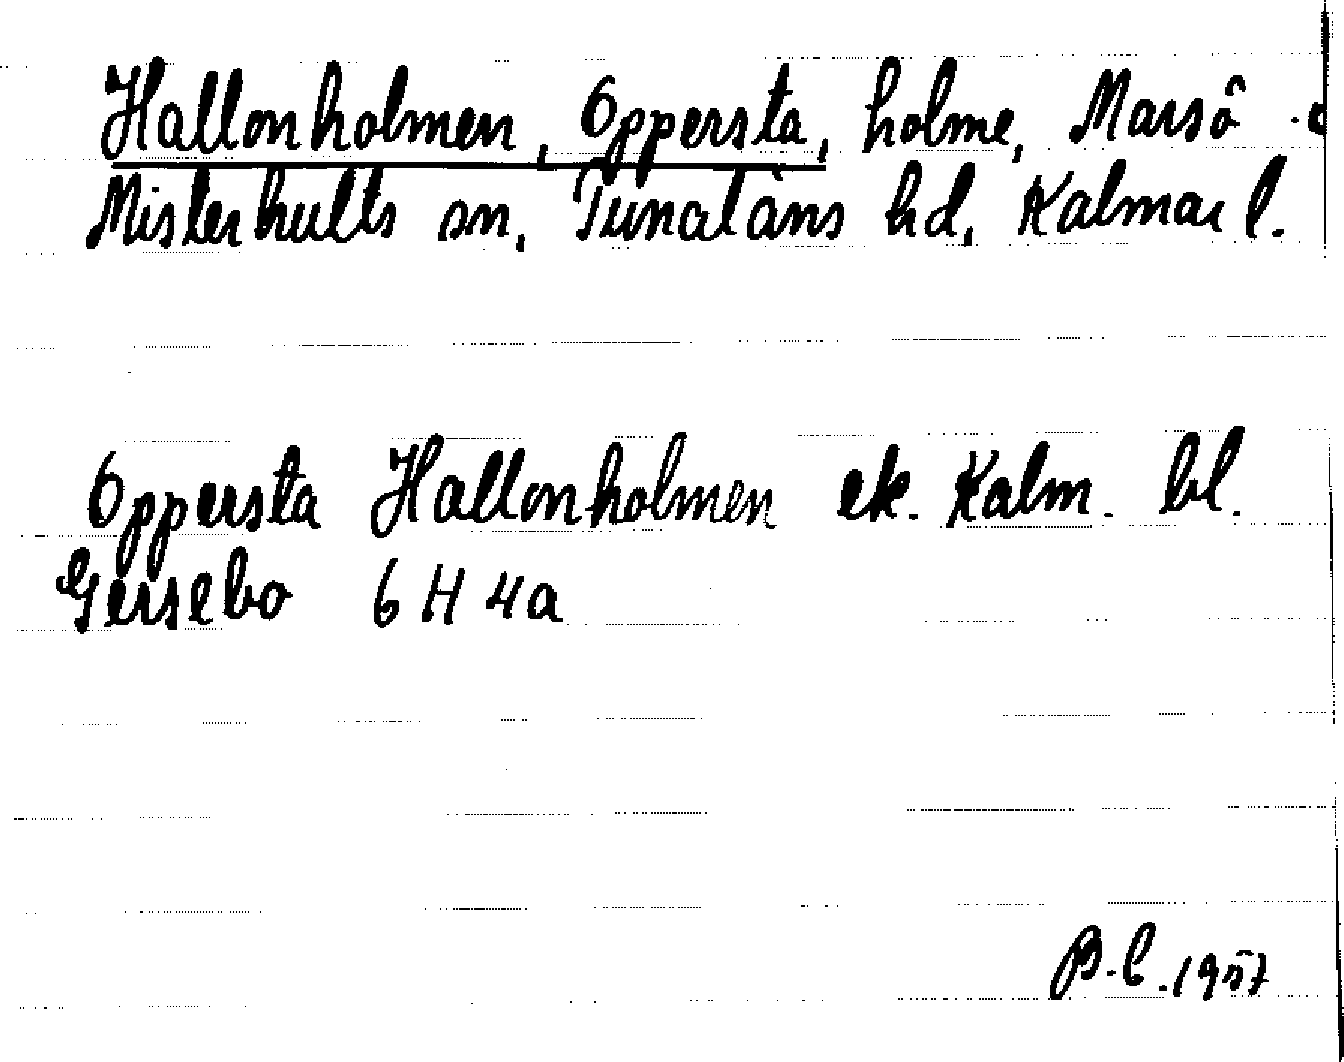 Hallonholmen, Oppersta, holme, Marsö
Misterhults sn, Tunaläns hd, Kalmar l.
Oppersta Hallonholmen ek. Kalm. bl.
Gersebo 6 H 4a
B.C. 1957